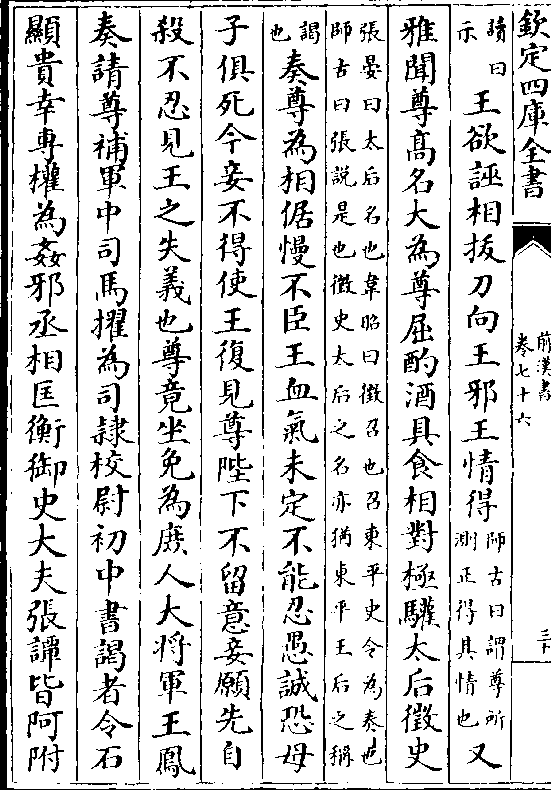 欽定四庫全書
前漢書
卷七十六
三十
讀曰
示
王欲誣相拔刀向王邪王情得
師古曰謂尊所
測正得其情也
又
雅聞尊髙名大為尊屈酌酒具食相對極驩太后徵史
張晏曰太后名也韋昭曰徵召也召東平史令為奏也
師古曰張說是也徵史太后之名亦猶東平王后之稱
謁
也
奏尊為相倨慢不臣王血氣未定不能忍愚誠恐母
子俱死今妾不得使王復見尊陛下不留意妾願先自
殺不忍見王之失義也尊竟坐免為庶人大將軍王鳳
奏請尊補軍中司馬擢為司隷校尉初中書謁者令石
顯貴幸專權為姦邪丞相匡衡御史大夫張譚皆阿附